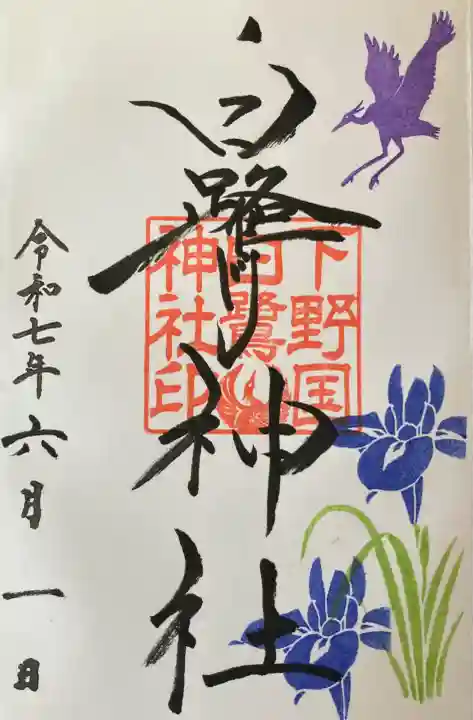 白鷺神社
下野国
白鷺
神社印
令和七年六月一日